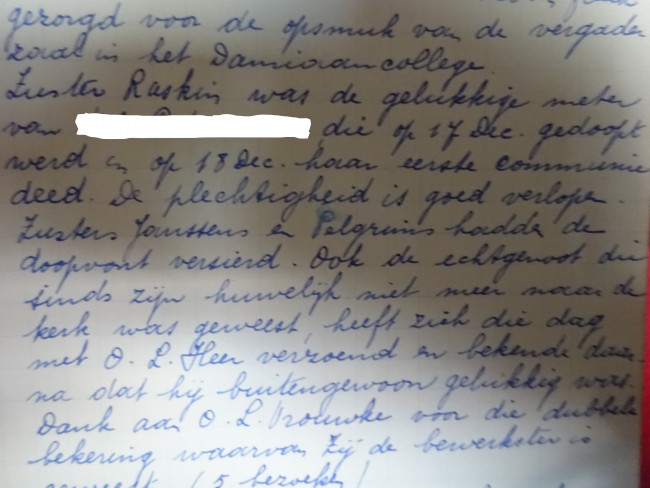 gezorgd voor de opsmuk van de vergader
zaal in het Damiaancollege.
Zuster Raskin was de gelukkige meter
van die op 17 Dec. gedoopt
werd en op 18 Dec. haar eerste communie
deed. De plechtigheid is goed verlopen.
Zusters Janssens en Pelgrims hadden de
doopvont versierd. Ook de echtgenoot die
sinds zijn huwelijk niet meer naar de
kerk was geweest, heeft zich die dag
met O. L. Heer verzoend en bekende daar
na dat hij buitengewoon gelukkig was.
Dank aan O. L. Vrouwke voor die dubbele
bekering waarvan Zij de bewerkster is
geweest. (5 bezoeken)